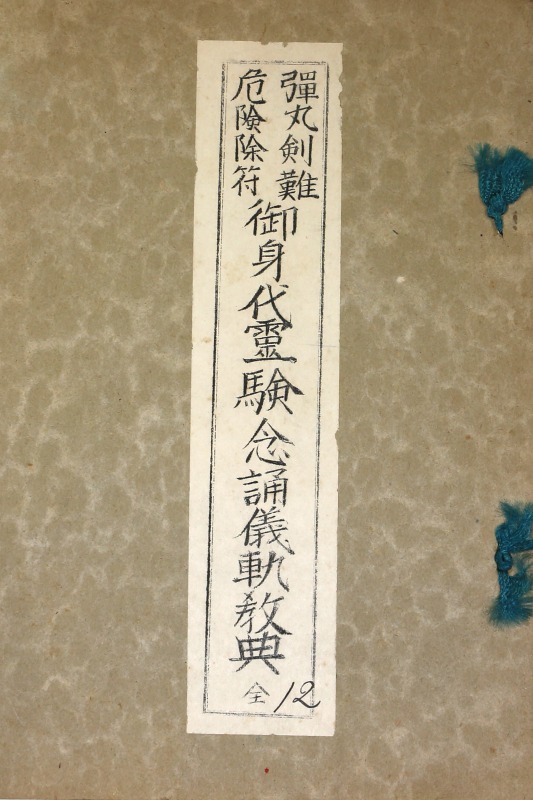 彈丸剣難
危険除符
御身代靈験念誦儀軌教典
全
12